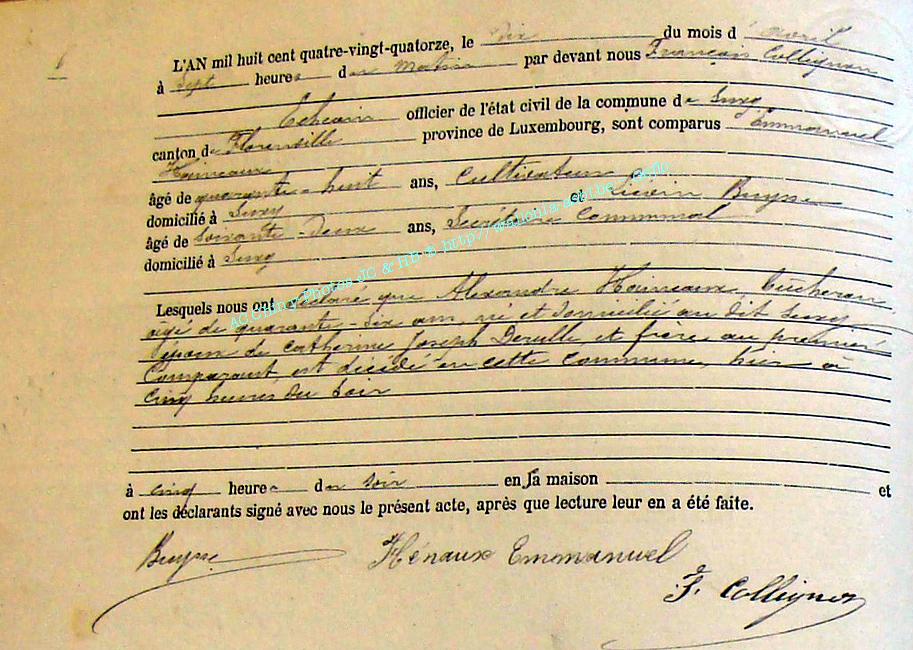 L'AN mil huit cent quatre-vingt-quatorze, le dix du mois d'avril
à Sept heures du matin par devant nous François Collignon
Echevin officier de l'état civil de la commune de Suxy
canton de Florenville province de Luxembourg, sont comparus Emmanuel
Haineaux
âgé de quarante-huit ans, Cultivateur
domicilié à Suxy et Buysse
âgé de Soixante-Deux ans, Secrétaire Communal
domicilié à Suxy
Lesquels nous ont déclaré que Alexandre Haineaux, bucheron
agé de quarante-six ans, né et domicilié au dit Suxy
époux de Catherine Joseph Derulle et frère au premier
Comparant, est décédé en cette commune, hier à
cinq heures du Soir
à cinq heures du Soir en sa maison et
ont les déclarants signé avec nous le présent acte, après que lecture leur en a été faite.
Buysse Hénaux Emmanuel
F. Collignon